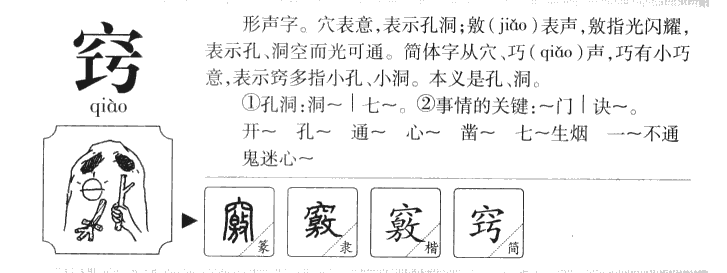 窍
qiào
形声字。穴表意,表示孔洞;敫(jiǎo)表声,敫指光闪耀,
表示孔、洞空而光可通。简体字从穴、巧(qiǎo)声,巧有小巧
意,表示窍多指小孔、小洞。本义是孔、洞。
①孔洞:洞～|七～。②事情的关键:～门|诀～。
开～ 孔～ 通～ 心～ 凿～ 七～生烟 一～不通
鬼迷心～
竅 篆
竅 隶
竅 楷
窍 简